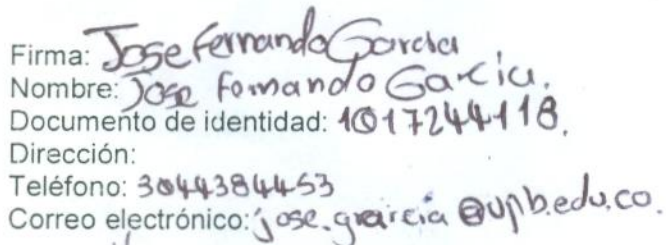 Firma: Jose Fernando Garcia
Nombre: Jose Fernando Garcia.
Documento de identidad: 1017244118.
Dirección:
Teléfono: 3044384453
Correo electrónico: jose.grarcia@upb.edu.co.